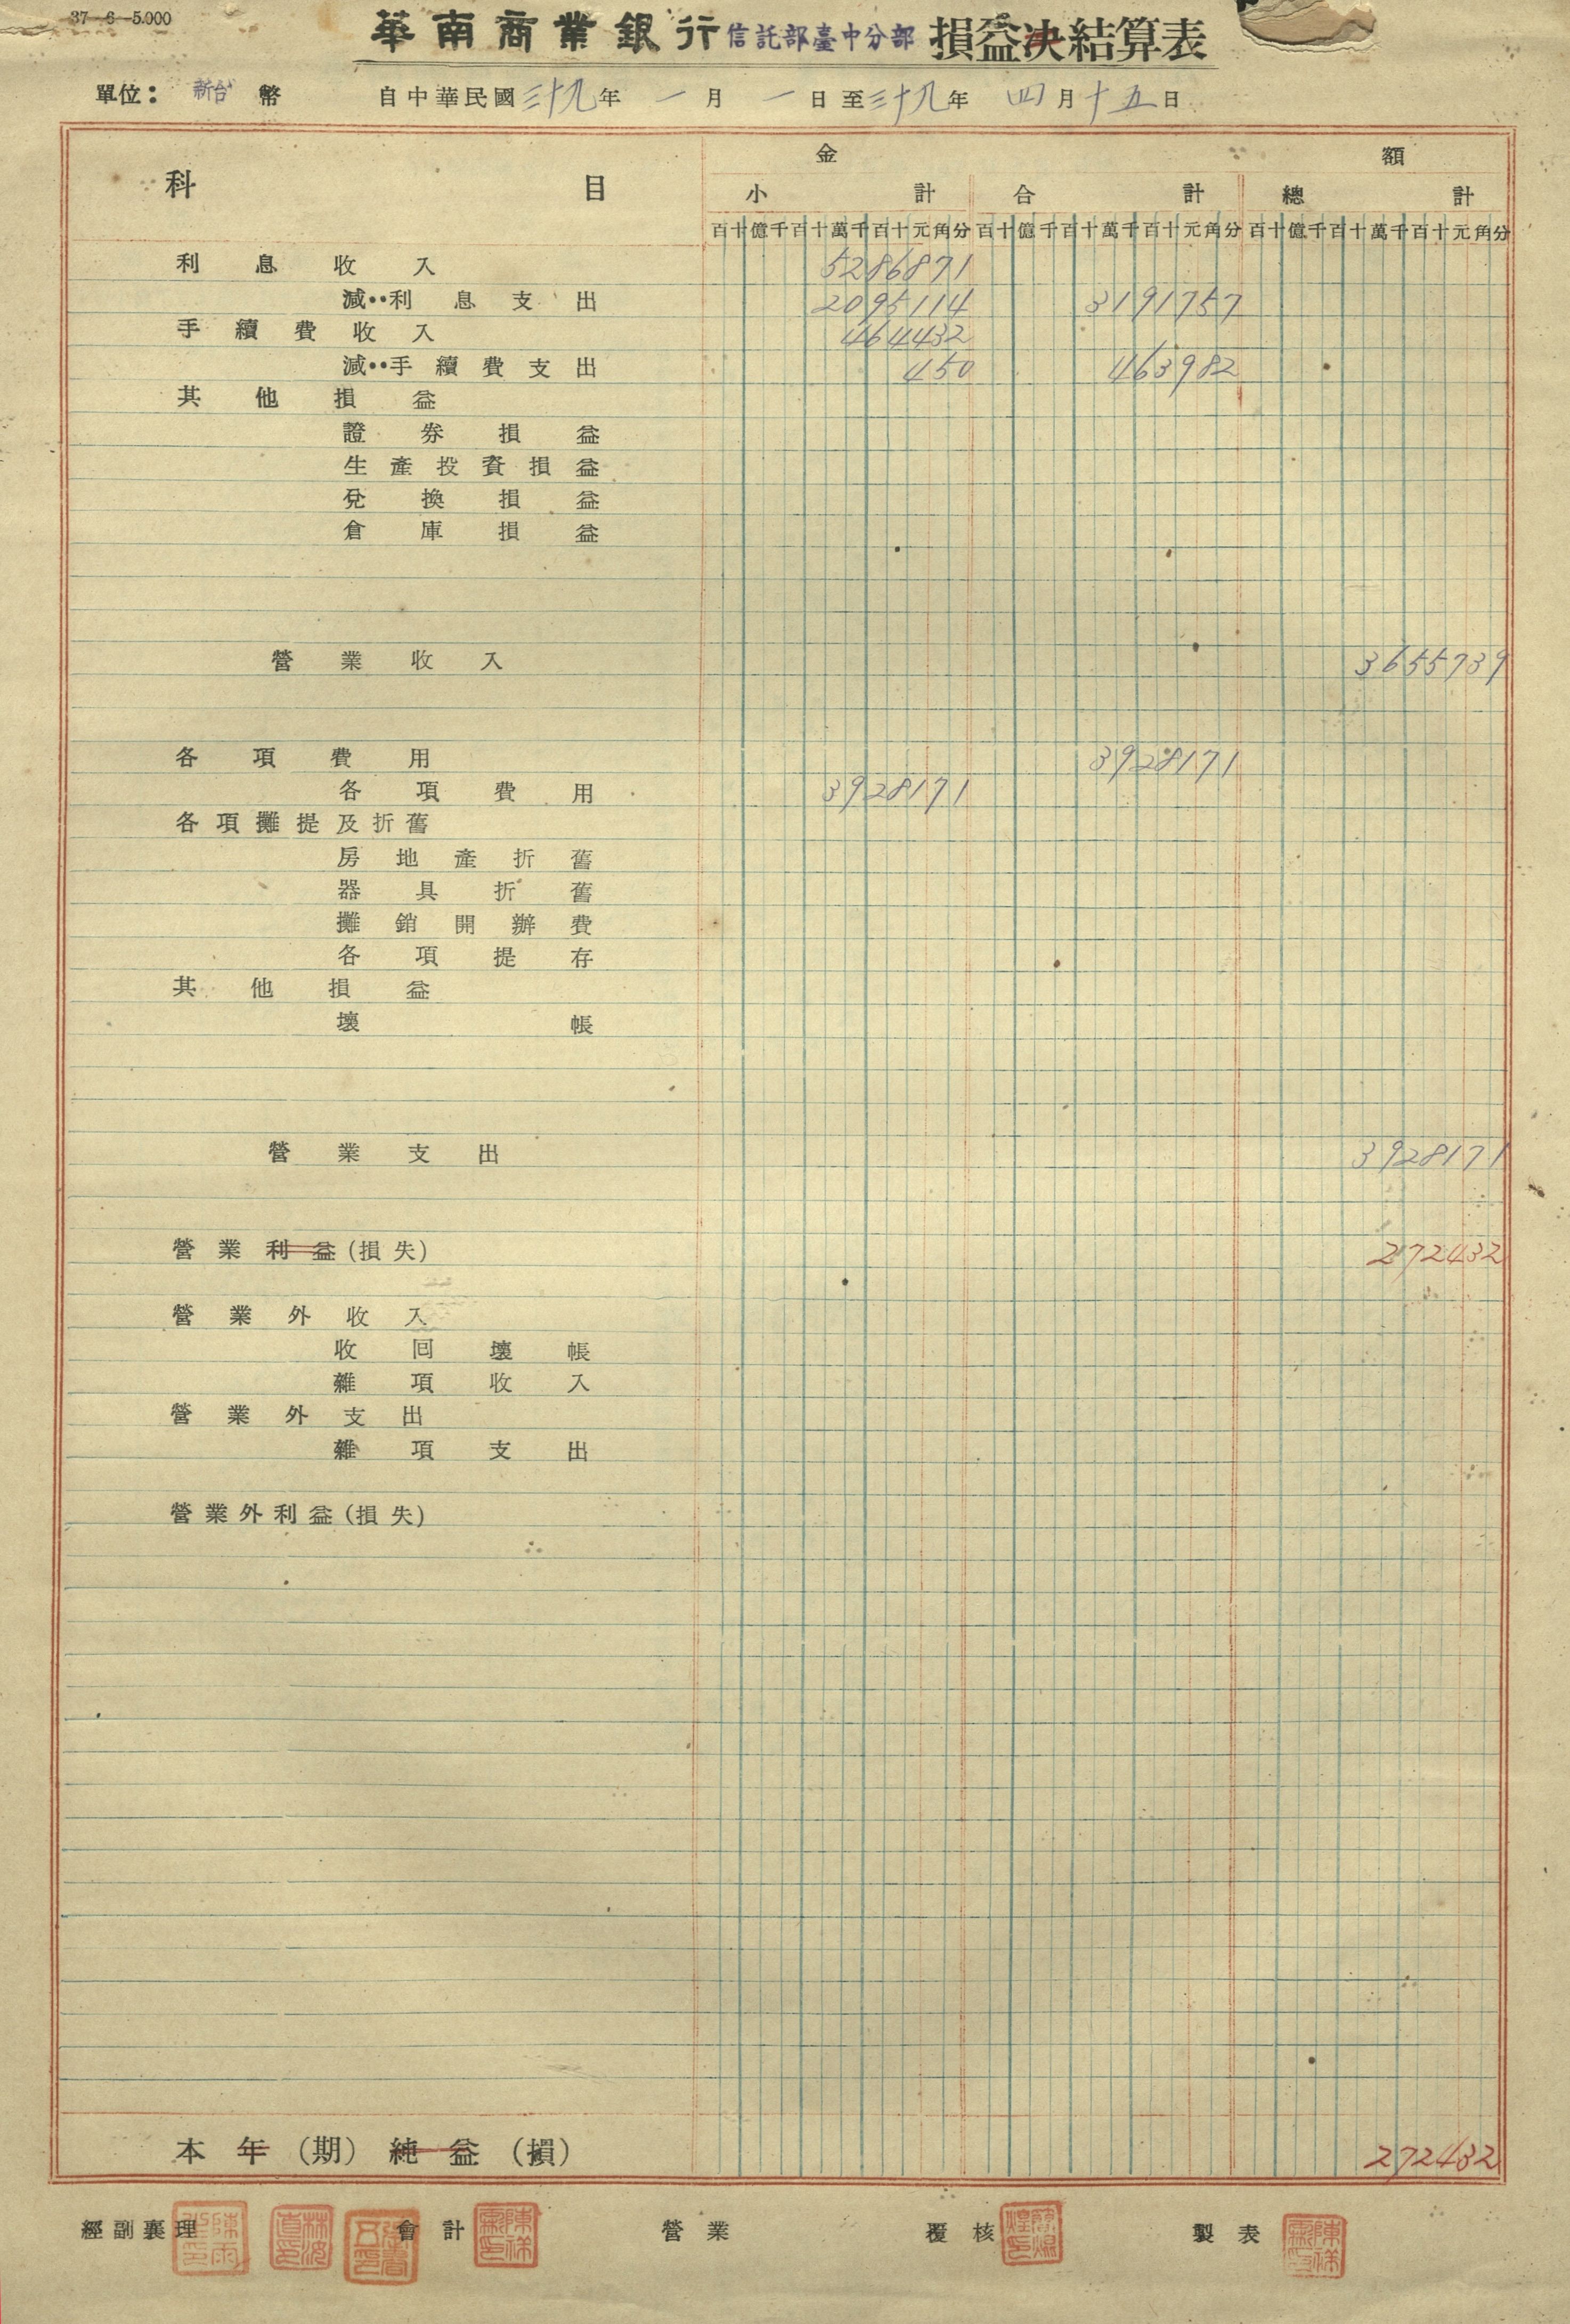 37—6—5.000
華南商業銀行信託部臺中分部 損益决結算表
單位：新台幣 自中華民國三十九年一月一日至三十九年四月十五日
科目 金額
小計 合計 總計
百十億千百十萬千百十元角分 百十億千百十萬千百十元角分 百十億千百十萬千百十元角分
利息收入 5286871
減：利息支出 2095114 3191757
手續費收入 464432
減：手續費支出 450 463982
其他損益
證券損益
生產投資損益
兌換損益
倉庫損益
營業收入 3655739
各項費用 3928171
各項費用 3928171
各項攤提及折舊
房地產折舊
器具折舊
攤銷開辦費
各項提存
其他損益
壞帳
營業支出 3928171
營業利益(損失) 272432
營業外收入
收回壞帳
雜項收入
營業外支出
雜項支出
營業外利益(損失)
本年(期)純益(損) 272432
經副襄理 會計 營業 覆核 製表